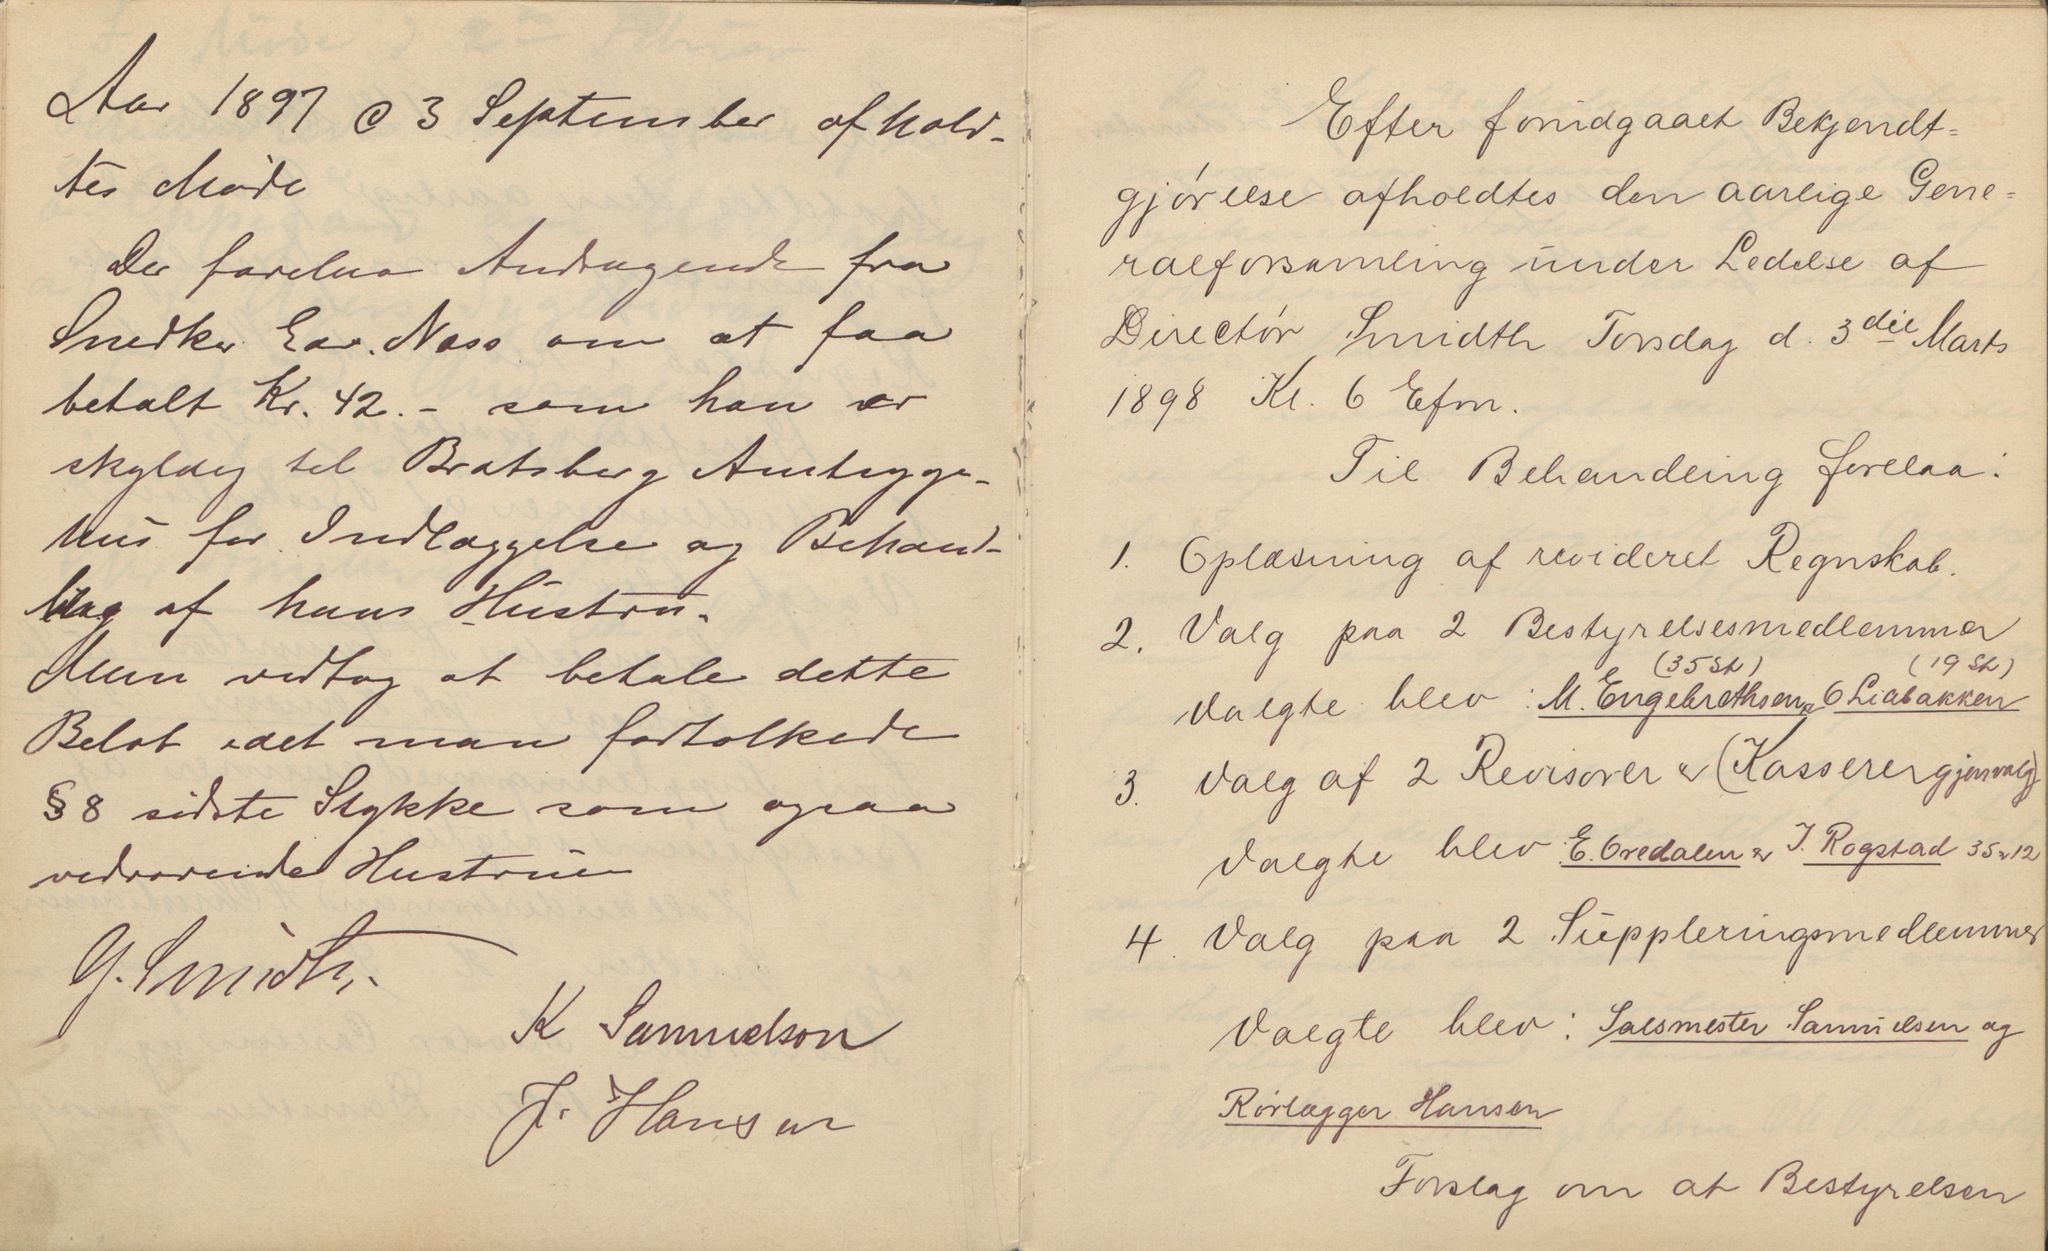 Aar 1897 @ 3 September afhold-
tes Møde
Der forelaa Andragende fra
Snedker Ear. Næss om at faa
betalt Kr. 42.- som han er
skyldig til Bratsberg Amtsyge-
hus for Indlæggelse og Behand-
ling af hans Hustru.
Man vedtog at betale dette
Beløb idet man fortolkede
§ 8 sidste Stykke som ogsaa
vedrørende Hustruen
G. Smidth.
K Samuelson
J. Hansen
Efter forudgaaet Bekjendt=
gjørelse afholdtes den aarlige Gene=
ralforsamling under Ledelse af
Directør Smidth Torsdag d. 3die Marts
1898 Kl. 6 Efm.
Til Behandling forelaa:
1. Oplæsning af revideret Regnskab.
2. Valg paa 2 Bestyrelsesmedlemmer
(35 St) (19 St)
Valgte blev: M. Engebrethsen & O Liabakken
3. Valg af 2 Revisorer & (Kasserer gjenvalg)
Valgte blev E. Oredalen & J. Rogstad 35 & 12
4. Valg paa 2 Suppleringsmedlemmer
Valgte blev: Salsmester Samuelsen og
Rørlægger Hansen
Forslag om at Bestyrelsen